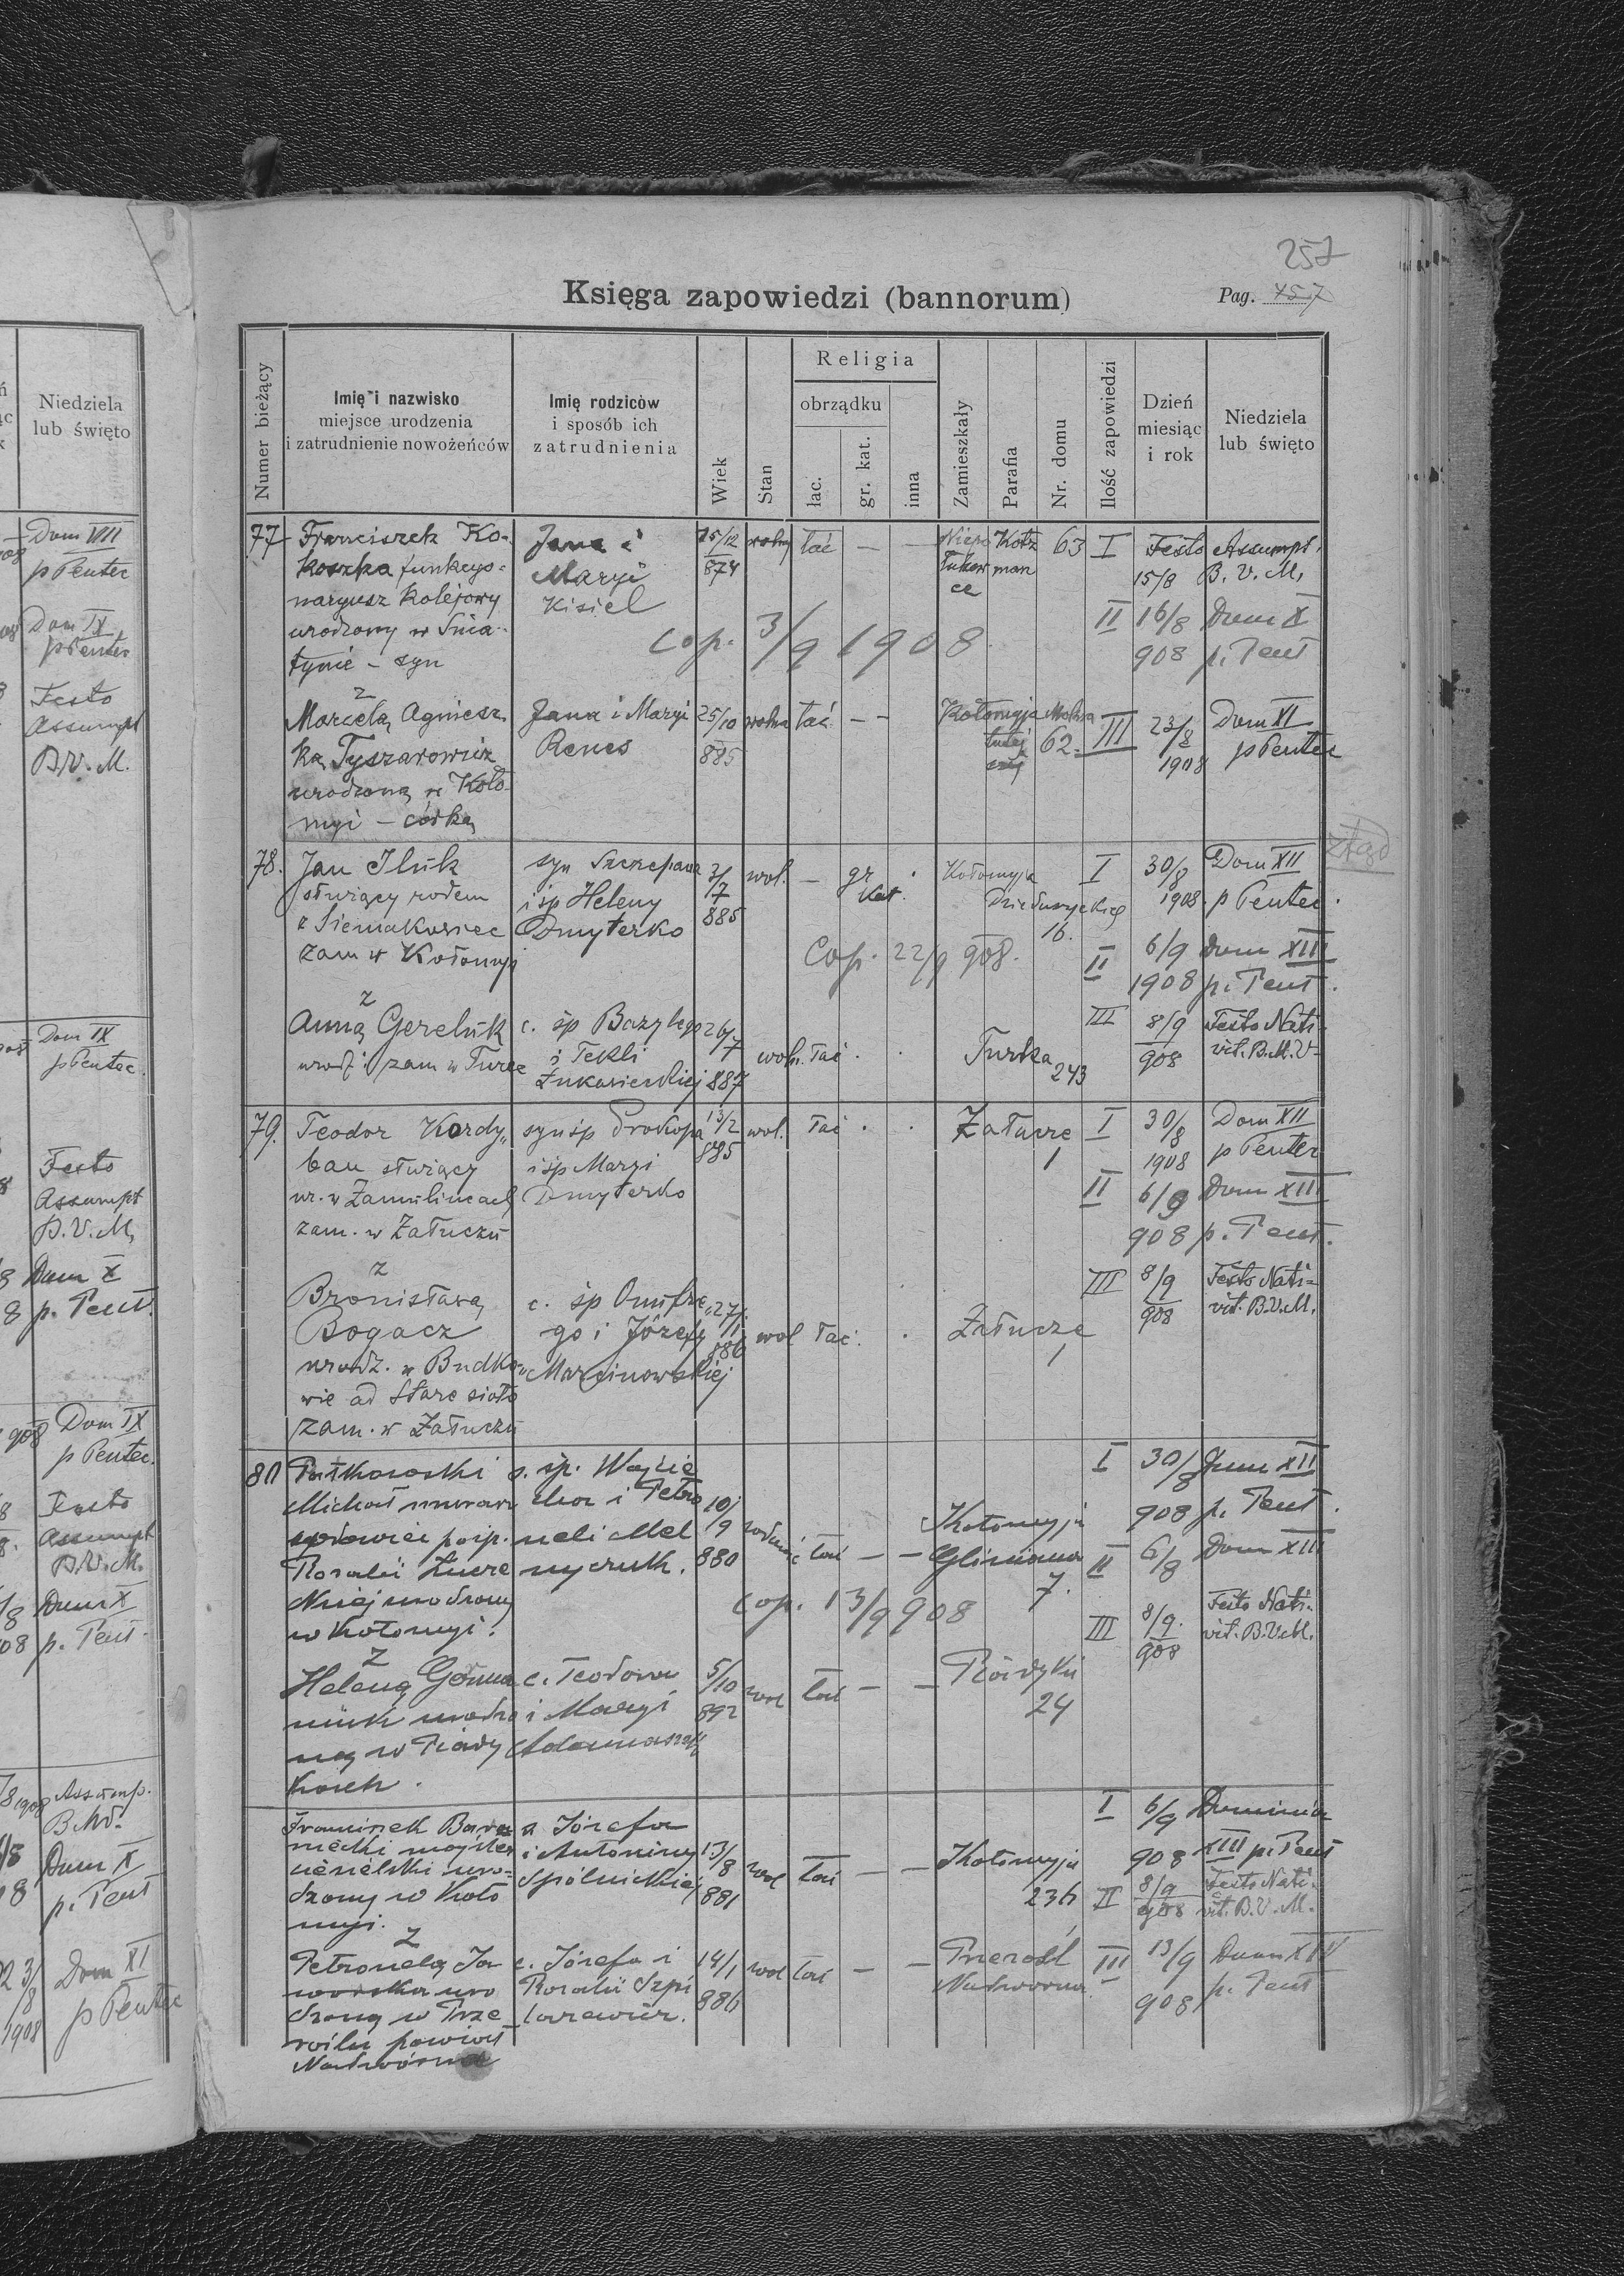 257
Księga zapowiedzi (bannorum)
Pag. 457
Numer bieżący
Imię i nazwisko
miejsce urodzenia
i zatrudnienie nowożeńców
Imię rodziców
i sposób ich
zatrudnienia
Wiek
Stan
Religia
obrządku
łac.
gr. kat.
inna
Zamieszkały
Parafia
Nr. domu
Ilość zapowiedzi
Dzień
miesiąc
i rok
Niedziela
lub święto
77 Franciszek Ko-
koszka funkcyo-
naryusz kolejowy
urodzony w Śnia-
tynie – syn
Jana i
Maryi
Kisiel
15/12
874
wolny łać — —
63 I Festo Assumpt.
15/8 B. V. M.
II 16/8 Dom X
908 p. Pent
Cop. 3/9 1908
z
Marcelą Agniesz-
ką Tyszarowicz
urodzoną w Koło-
myi – córką
Jana i Maryi
Renes
25/10
885
wolna łać — —
Kołomyja
62. III 23/8
1908
Dom XI
p Pentec
78. Jan Iluk
służący rodem
z Siemakowiec
zam w Kołomyi
syn Szczepana
i śp Heleny
Dmyterko
3/7
885
wol. — gr
kat.
Kołomyja
Dzieduszyckiej
16.
I 30/8
1908
Dom XII
p Pentec.
Cop. 22/9 908.
II 6/9
1908
Dom XIII
p. Pent.
III 8/9
908
Festo Nati-
vit. B.M.V.
z
Anną Gereluk
urodz i zam w Turce
c. śp Bazylego
i Tekli
Łukasieckiej
26/7
887
woln. łać . .
Turka
243
79. Teodor Kordy-
ban służący
ur. w Zamulincach
zam. w Załuczu
syn śp Prokopa
i śp Maryi
Dmyterko
13/2
885
wol. łać . .
Załucze
1
I 30/8
1908
Dom XII
p Pentec
II 6/9
908
Dom XIII
p. Pent.
III 8/9
908
Festo Nati-
vit. B.V.M.
z
Bronisławą
Bogacz
urodz. w Budko-
wie ad Stare sioło
zam. w Załuczu
c. śp Onufre-
go i Józefy
Marcinowskiej
27/1
886
wol łać . .
Załucze
1
80 Patkowski
Michał
Rosalii
w Kołomyi.
s. śp. Wojcie
cha i Petro
neli Mel
nyczuk.
10/9
880
łać — —
Kołomyja
7.
I 30/8
908
Dom XII
p. Pent.
II 6/8
Dom XIII
Cop. 13/9 908
III 8/9.
908
Festo Nati-
vit. B.V.M.
z
Heleną
c. Teodora
i Maryi
5/10
892
wol łać — —
24
Franciszek
dzony w Koło
myi.
s Józefa
i Antoniny
Spólnickiej
13/8
881
wol łać — —
Kołomyja
236
I 6/9
908
Dominica
XIII p. Pent
II 8/9
908
Festo Nati-
vit. B.V.M.
z
Petronelą Ja
worska uro
dzoną w Prze
rośli powiat
Nadwórna
c. Józefa i
Rozalii Szpi
larewicz.
14/1
886
wol łać — —
Przerośl
Nadworna
III 13/9
908
Dom XIV
p. Pent
Niedziela
lub święto
Dom VIII
p Pentec
Dom IX
p Pentec
Festo
Assumpt
B.V.M.
Dom IX
p Pentec.
Festo
Assumpt
B.V.M.
Dom X
p. Pent.
908 Dom IX
p Pentec.
Festo
Assumpt
B.V.M.
Dom X
p. Pent.
1908 Assump.
B.M.V.
Dom X
p. Pent
Dom XI
p Pentec
1908